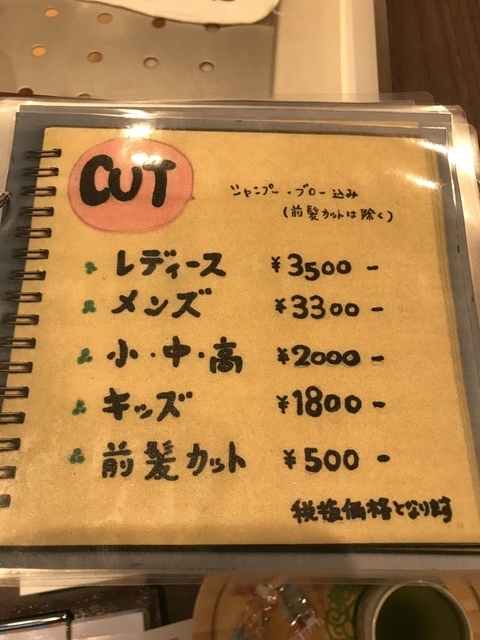 CUT
シャンプー・ブロー込み
(前髪カットは除く)
レディース ¥3500-
メンズ ¥3300-
小・中・高 ¥2000-
キッズ ¥1800-
前髪カット ¥500-
税抜価格となります